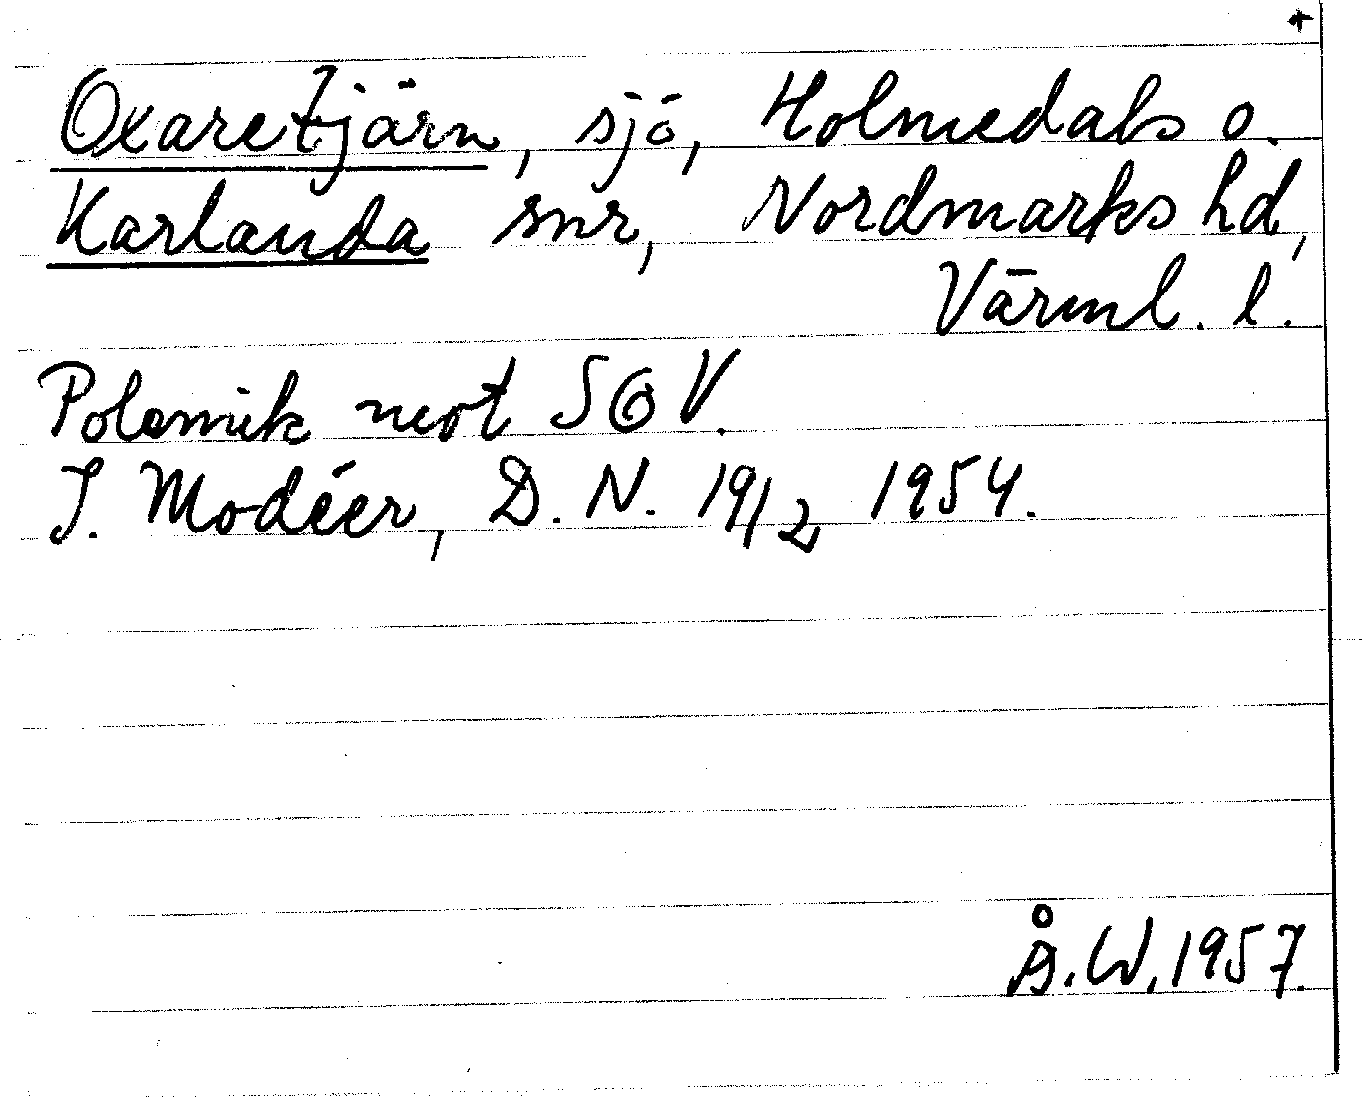 +
Oxaretjärn, sjö, Holmedals o.
Karlanda snr, Nordmarks hd,
Värml. l.
Polemik mot SOV.
I. Modéer, D. N. 19/2 1954.
Å. W. 1957.